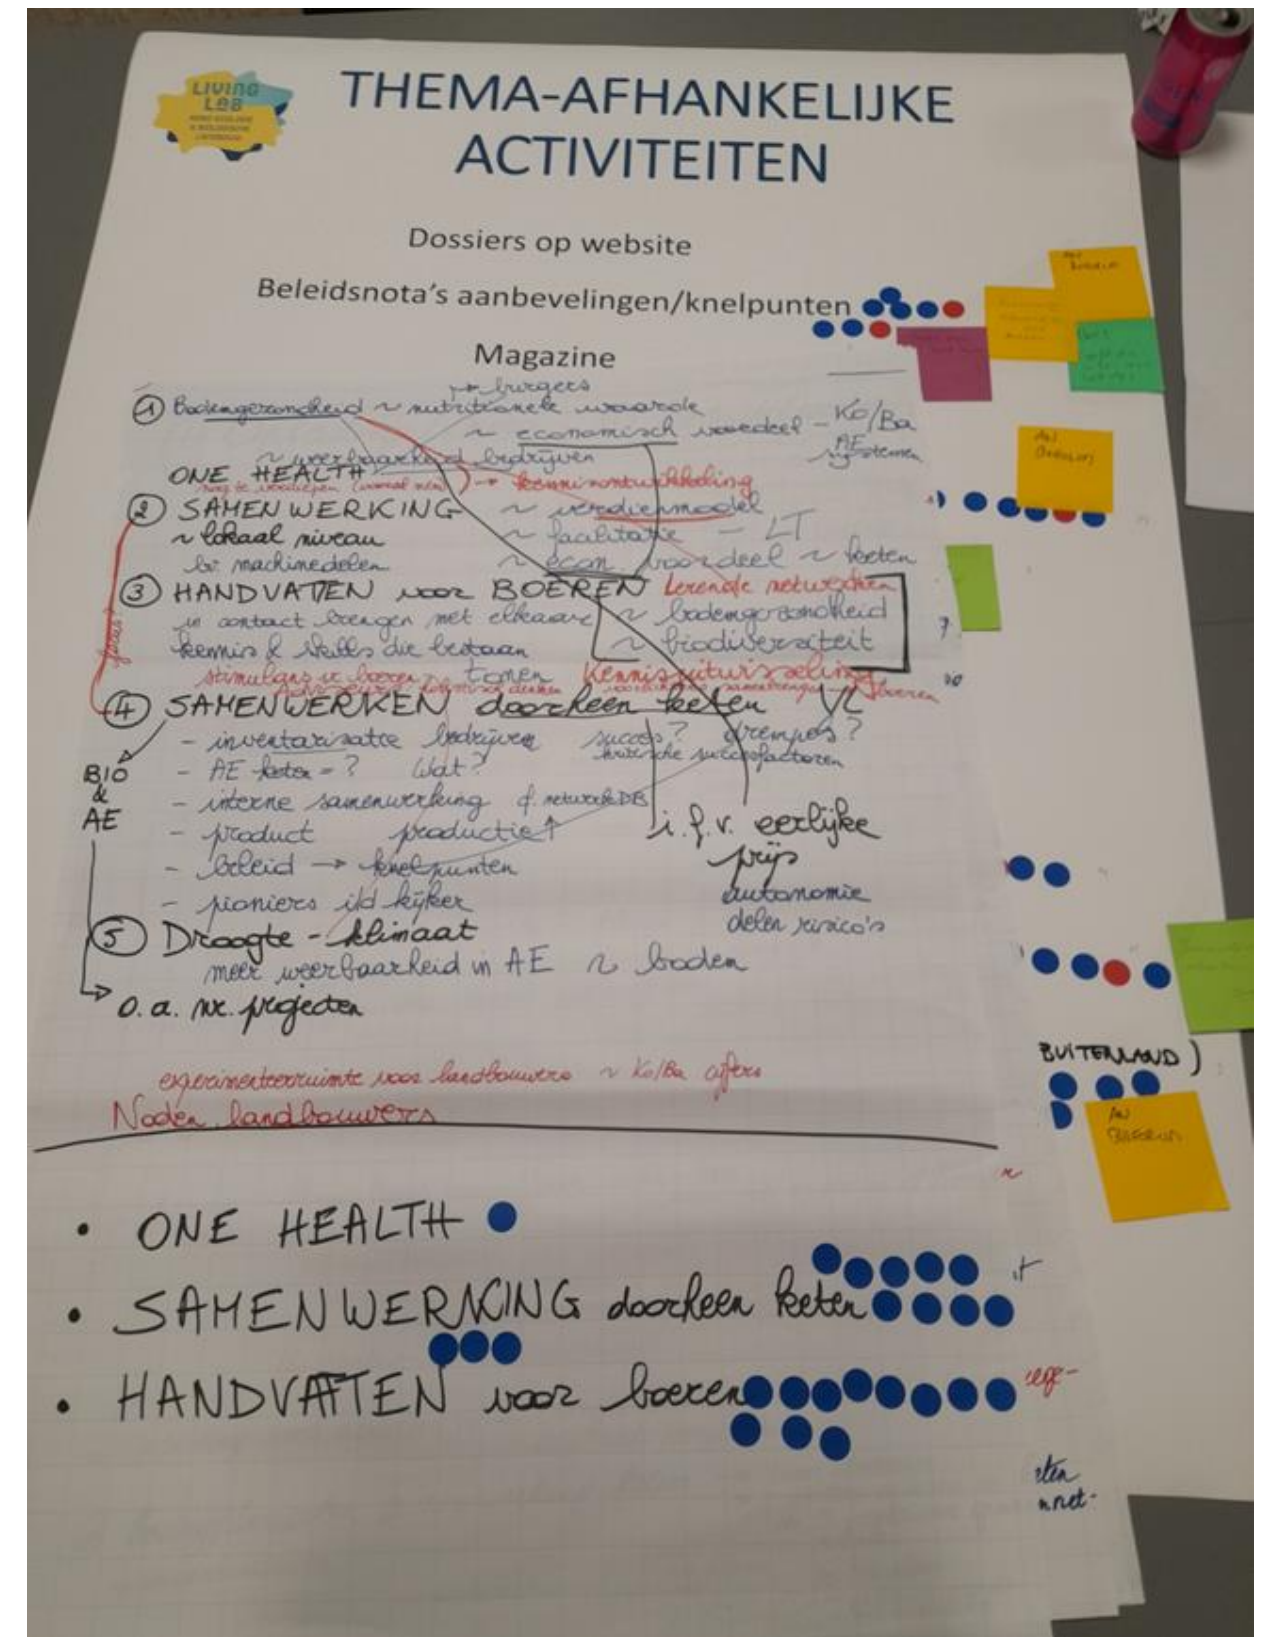 LIVING
LAB
THEMA-AFHANKELIJKE
ACTIVITEITEN
Dossiers op website
Beleidsnota's aanbevelingen/knelpunten
Magazine
burgers
1 Bodemgezondheid ~ nutritionele waarde
~ economisch voordeel - Ko/Ba
AE systemen
~ weerbaarheid bedrijven
ONE HEALTH
→ kennisontwikkeling
2 SAMENWERKING ~ verdienmodel
~ lokaal niveau ~ facilitatie - LT
bv. machinedelen ~ econ. voordeel ~ keten
3 HANDVATTEN voor BOEREN lerende netwerken
in contact brengen met elkaar ~ bodemgezondheid
kennis & skills die bestaan ~ biodiversiteit
tonen Kennisuitwisseling
boeren
focus
4 SAMENWERKEN doorheen keten VL
- inventarisatie bedrijven succes? drempels?
kritische succesfactoren
- AE keten = ? Wat?
BIO
&
AE
- interne samenwerking & netwerk DB
- product productie↑
i.f.v. eerlijke
prijs
- beleid → knelpunten
- pioniers i/d kijker
autonomie
delen risico's
5 Droogte - klimaat
meer weerbaarheid in AE ~ boden
o.a. nr. projecten
experimenteerruimte voor landbouwers ~ Ko/Ba cijfers
Noden landbouwers
BUITENLAND)
AN
• ONE HEALTH
• SAMENWERKING doorheen keten
• HANDVATTEN voor boeren